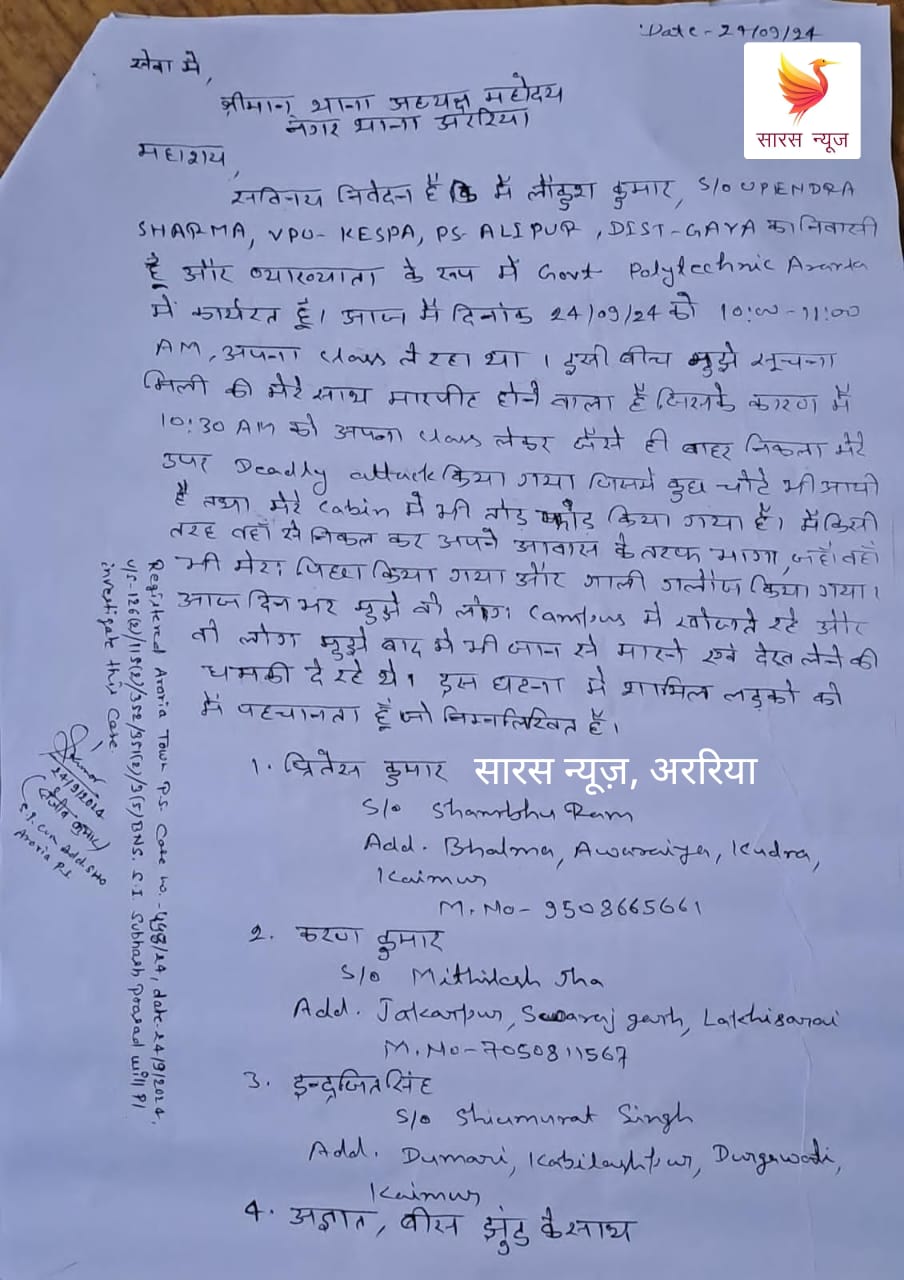 Date - 24/09/24
सेवा में,
श्रीमान् थाना अध्यक्ष महोदय
नगर थाना अररिया
सारस न्यूज
महाशय,
सविनय निवेदन है कि मैं लौकुश कुमार, S/o UPENDRA
SHARMA, VPO- KESPA, PS- ALIPUR, DIST-GAYA का निवासी
हूँ और व्याख्याता के रूप में Govt Polytechnic Araria
में कार्यरत हूँ। आज मैं दिनांक 24/09/24 को 10:00-11:00
AM, अपना class ले रहा था। इसी बीच मुझे सूचना
मिली की मेरे साथ मारपीट होने वाला है जिसके कारण मैं
10:30 AM को अपना class लेकर जैसे ही बाहर निकला मेरे
उपर Deadly attack किया गया जिसमें कुछ चोटें भी आयी
है तथा मेरे Cabin में भी तोड़ फोड़ किया गया है। मैं किसी
तरह वहाँ से निकल कर अपने आवास के तरफ भागा, जहाँ वहाँ
भी मेरा पिछा किया गया और गाली गलौज किया गया।
आज दिन भर मुझे वो लोग Campus में खोजते रहे और
वो लोग मुझे बाद में भी जान से मारने एवं देख लेने की
धमकी दे रहे थे। इस घटना में शामिल लड़को को
मैं पहचानता हूँ जो निम्नलिखित है।
1. प्रितेस कुमार
सारस न्यूज़, अररिया
S/o Shambhu Ram
Add. Bhalma, Awaraiya, Kudra,
Kaimur
M.No- 9508665661
2. करण कुमार
S/o Mithilesh Jha
Add. Jakarpur, Surajgarh, Lakhisarai
M.No-7050811567
3. इन्द्रजित सिंह
S/o Shiumurat Singh
Add. Dumari, Kabilashpur, Durgawadi,
Kaimur
4. अज्ञात, बीस झुंड के साथ
Registered Araria Town P.S. Case no.- 498/24, date-24/9/2024,
U/S-126(2)/115(2)/352/351(2)/3(5) BNS. S.I. Subhash prasad will P1
investigate this Case.
24/9/2024
S.I. cum Addl. SHO
Araria PS